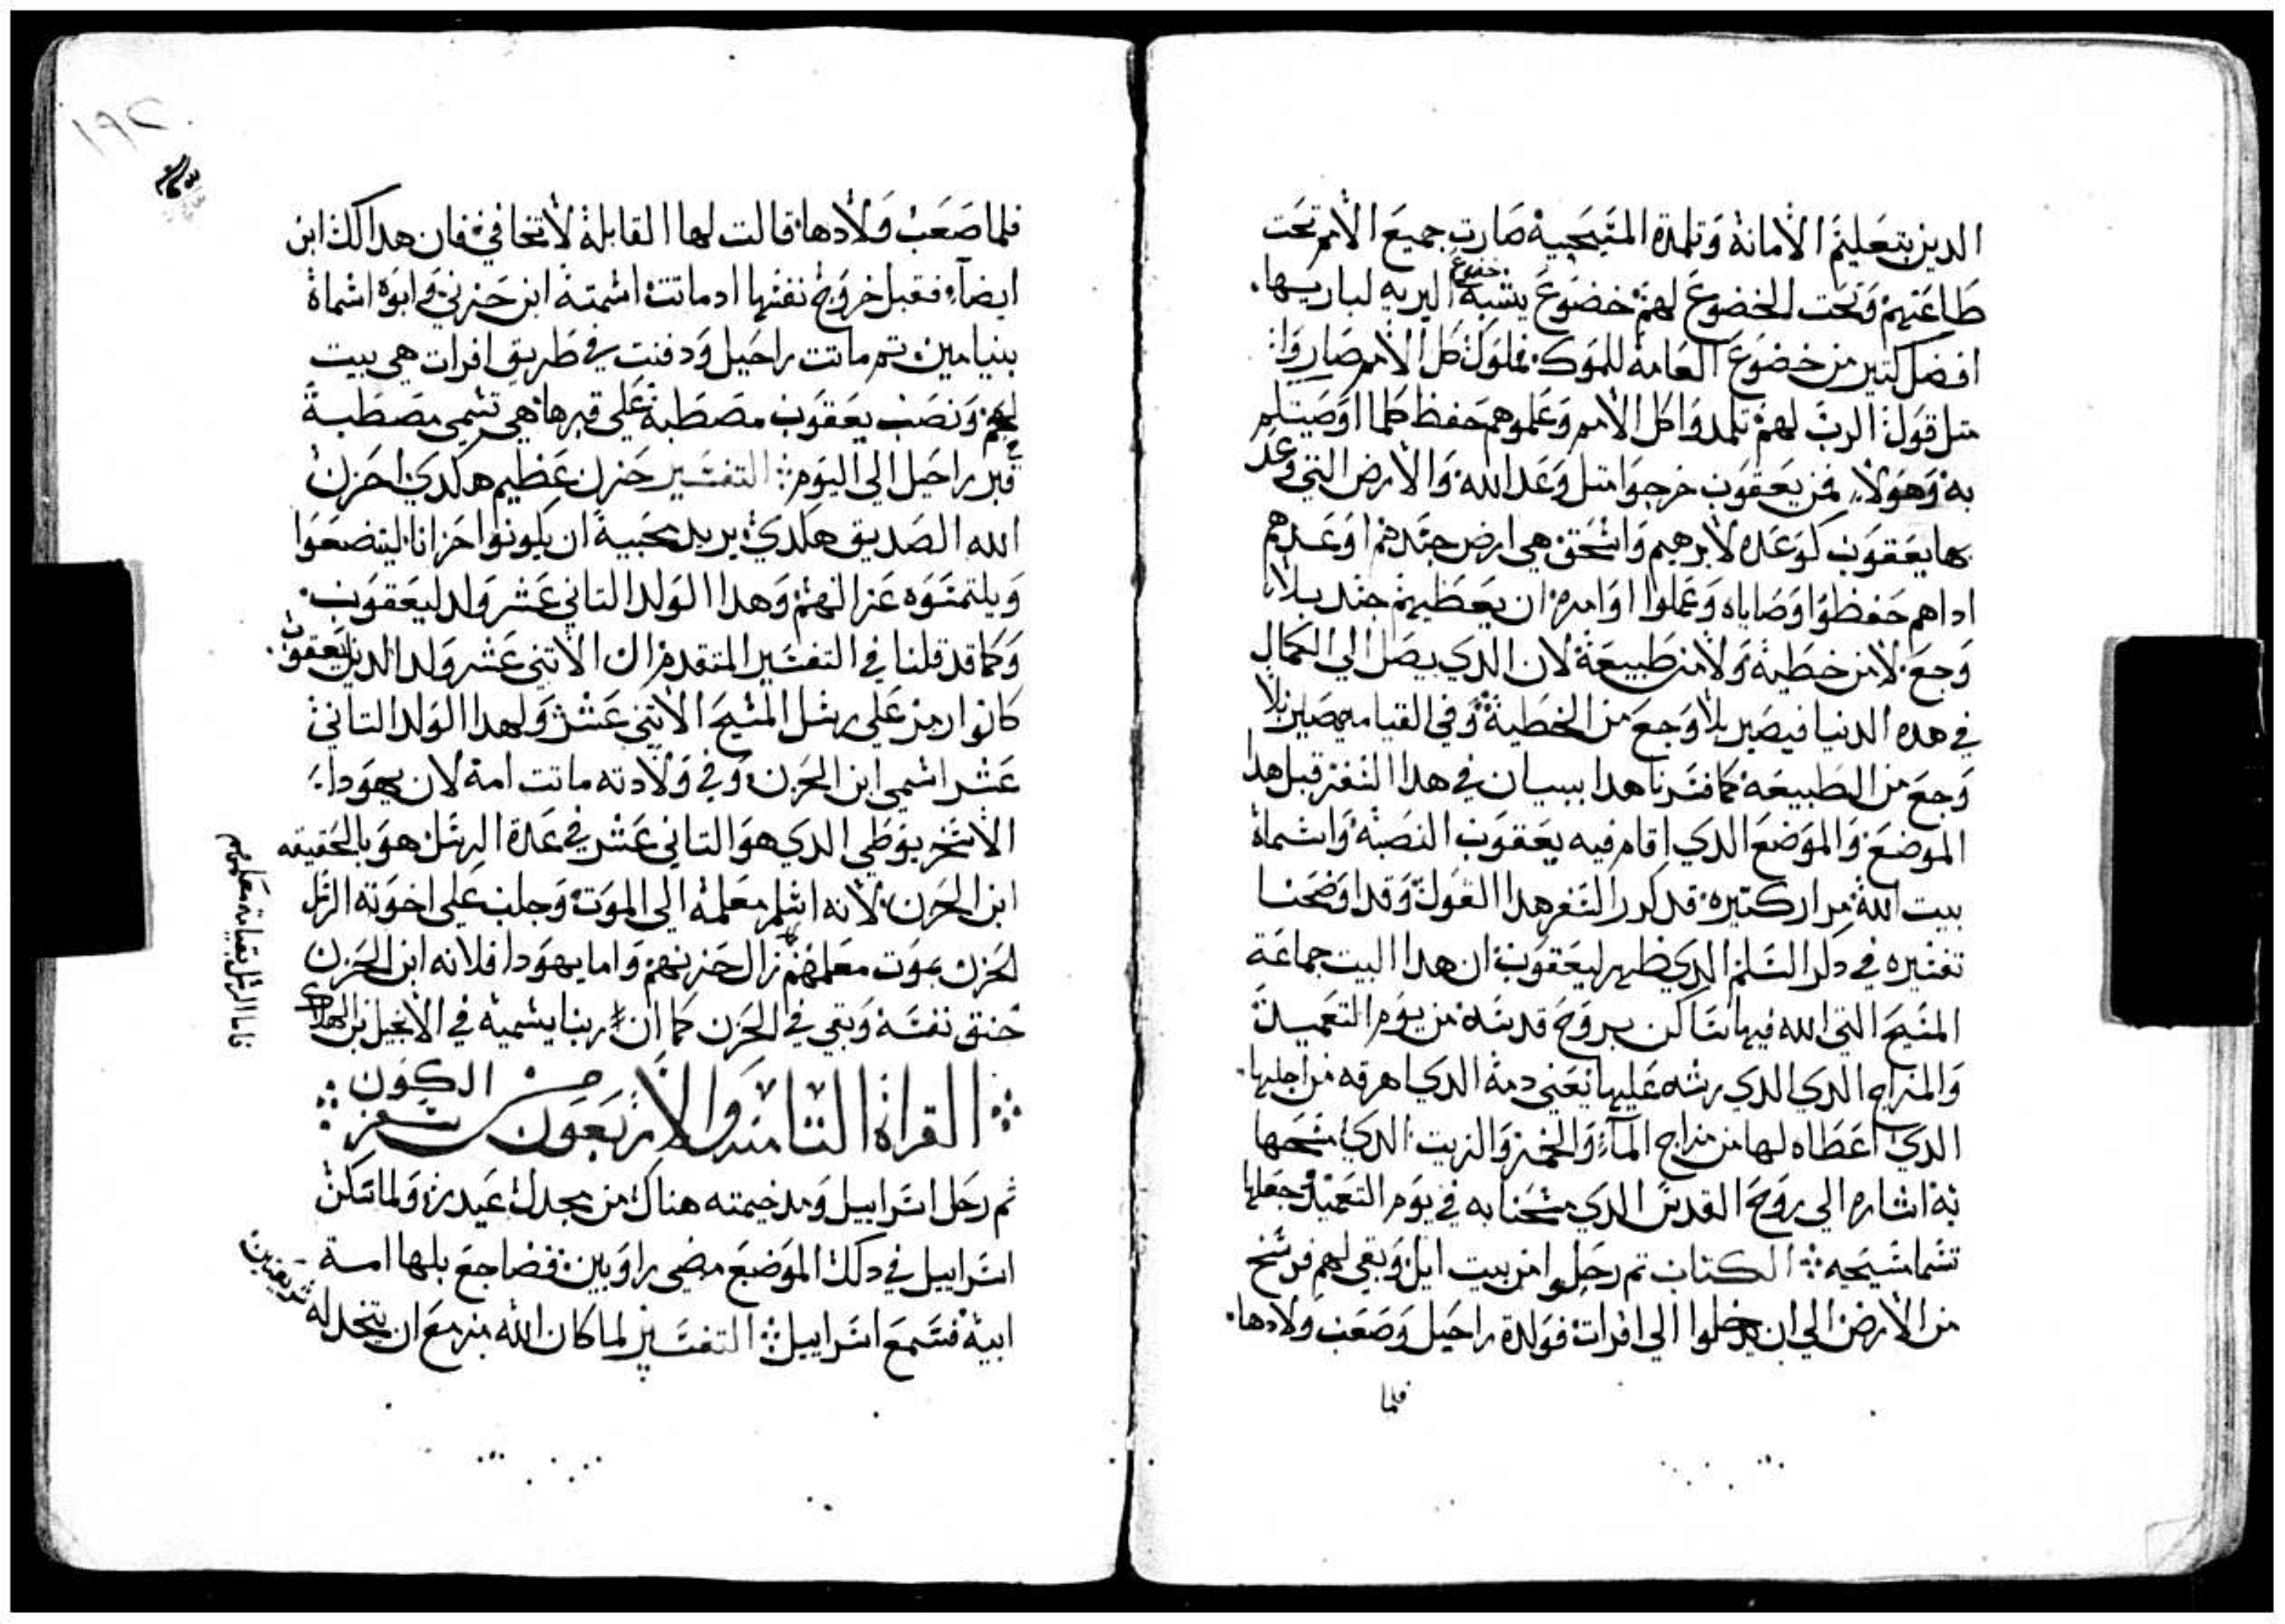 الدين بتعليم الأمانة وتلمدة المسيحية صارت جميع الأمم تحت
طاعتهم وتحت الخضوع لهم خضوع يشبه خضوع البريه لباريها
افضل كتير من خضوع العامة للموك فملوك كل الأمم صاروا
متل قول الرب لهم تلمدوا كل الأمم وعلموهم حفظ كلما اوصيتلم
به وهولاء فمن يعقوب خرجوا متل وعد الله والأرض التي وعد
بها يعقوب كوعده لابرهيم واسحق هي ارض جسدهم اوعدهم
اداهم حفظوا وصاياه وعملوا اوامره ان يعطيهم جسد بلا
وجع لا من خطية ولا من طبيعة لان الدي يصل الي الكمال
في هده الدنيا فيصير بلا وجع من الخطية وفي القيامه يصير بلا
وجع من الطبيعة كما فسرنا هدا ببيان في هدا السفر قبل هدا
الموضع والموضع الدي اقام فيه يعقوب النصبة واسماة
بيت الله مرار كتيره قد كرر السفر هدا القول وقد اوضحنا
تفسيره في دكر السلم الدي ظهر ليعقوب ان هدا البيت جماعة
المسيح التي الله فيها ساكن بروح قدسه من يوم التعميد
والمزاج الدي الدي رشه عليها نعني دمة الدي اهرقه من اجلها
الدي اعطاه لها من مزاج المآء والخمر والزيت الدي مسحها
به اشاره الي روح القدس الدي مسحنا به في يوم التعميد جعلها
تسما مسيحيه الكتاب تم رحلوا من بيت ايل وبقي لهم فرسخ
من الأرض الي ان يدخلوا الي افرات فولدة راحيل وصعب ولادها
فلما
١٩٢
فلما صعب ولادها قالت لها القابلة لا تخافي فان هدا لك ابن
ايضاء فقبل خروج نفسها ادماتت اسمته ابن حزني وابوه اسماة
بنيامين تم ماتت راحيل ودفنت في طريق افرات هي بيت
لحم ونصب يعقوب مصطبة علي قبرها هي تسمي مصطبة
قبر راحيل الي اليوم التفسير حزن عظيم هكدي احزن
الله الصديق هكدي يريد محبيه ان يكونوا حزانا ليتضعوا
ويلتمسوه عزا لهم وهدا الولد التاني عشر ولد ليعقوب
وكما قد قلنا في التفسير المتقدم ان الأتني عشر ولد الدين ليعقوب
كانوا رمز علي رسل المسيح الأتني عشر ولهدا الولد التاني
عشر اسمي ابن الحزن وفي ولادته ماتت امه لان يهودا
الأسخريوطي الدي هو التاني عشر في عدة الرسل هو بالحقيقه
ابن الحزن لانه اسلم معلمه الي الموت وجلب علي اخوته الرسل
الحزن بموت معلمهم زال حزنهم واما يهودا فلانه ابن الحزن
خنق نفسه وبقي في الحزن كما ان ربنا يسميه في الأنجيل بن الهلاك
فاما الرسل بقيامة معلمهم
القراة التامنه والأربعون من سفر الكون
تم رحل اسراييل ومد خيمته هناك من مجدل عيدر ولما سكن
اسراييل في دلك الموضع مضي راوبين فضاجع بلها امة
ابيه فسمع اسراييل التفسير لما كان الله مزمع ان يتخد له شريعتين